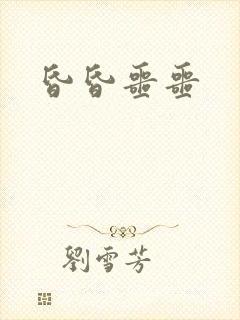 昏昏噩噩
劉雪芳